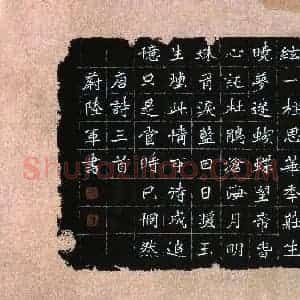 絃一柱思華年莊生
曉夢迷蝴蝶望帝春
心託杜鵑滄海月明
珠有淚藍田日暖玉
生煙此情可待成追
憶只是當時已惘然
唐詩三首
蔚陸軍書